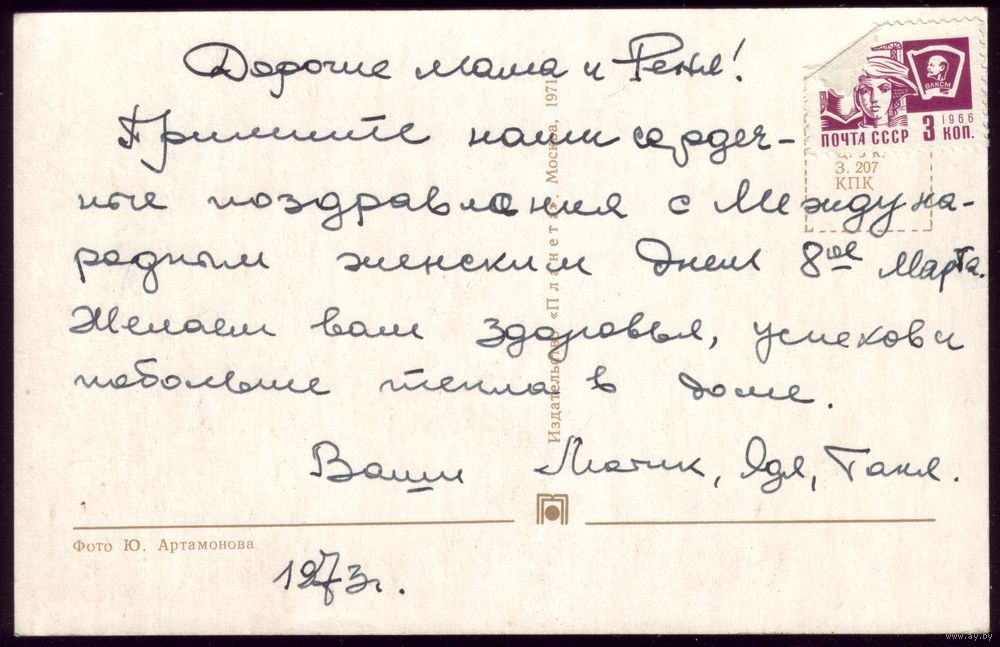 Дорогие мама и Реня!
Примите наши сердеч-
ные поздравления с Междуна-
родным женским днем 8ое Марта.
Желаем вам здоровья, успехов и
побольше тепла в доме.
Ваши Мотик, Ядя, Таня.
1973г.
ВЛКСМ
1966
ПОЧТА СССР 3 КОП.
З. 207
КПК
Издательство «Планета». Москва, 1971
Фото Ю. Артамонова
www.ay.by